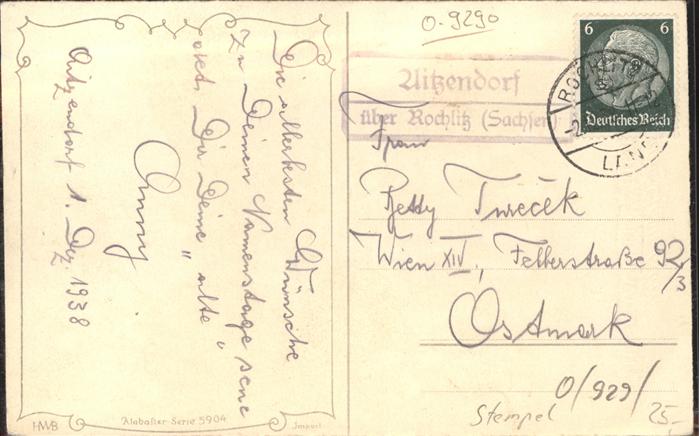 Die allerbesten Wünsche
zu Deinem Namenstage sen-
det Dir Deine „alte“
Anny
Aitzendorf 1. Dez. 1938
HWB
Alabaster-Serie 5904
Import
O-9290
6 6
Deutsches Reich
ROCHLITZ
LAND
Aitzendorf
über Rochlitz (Sachsen)
Frau
Betty Tureček
Wien XIV., Felberstraße 92/3
Ostmark
O/929/
Stempel
25.-